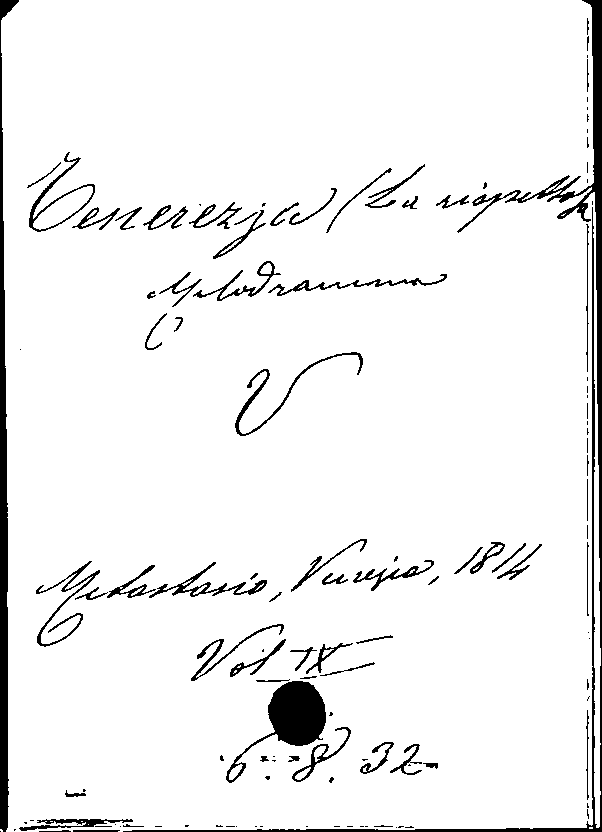 Tenerezza (La rispettosa
Melodramma
V
Metastasio, Venezia, 1814
Vol IX
6. 8. 32